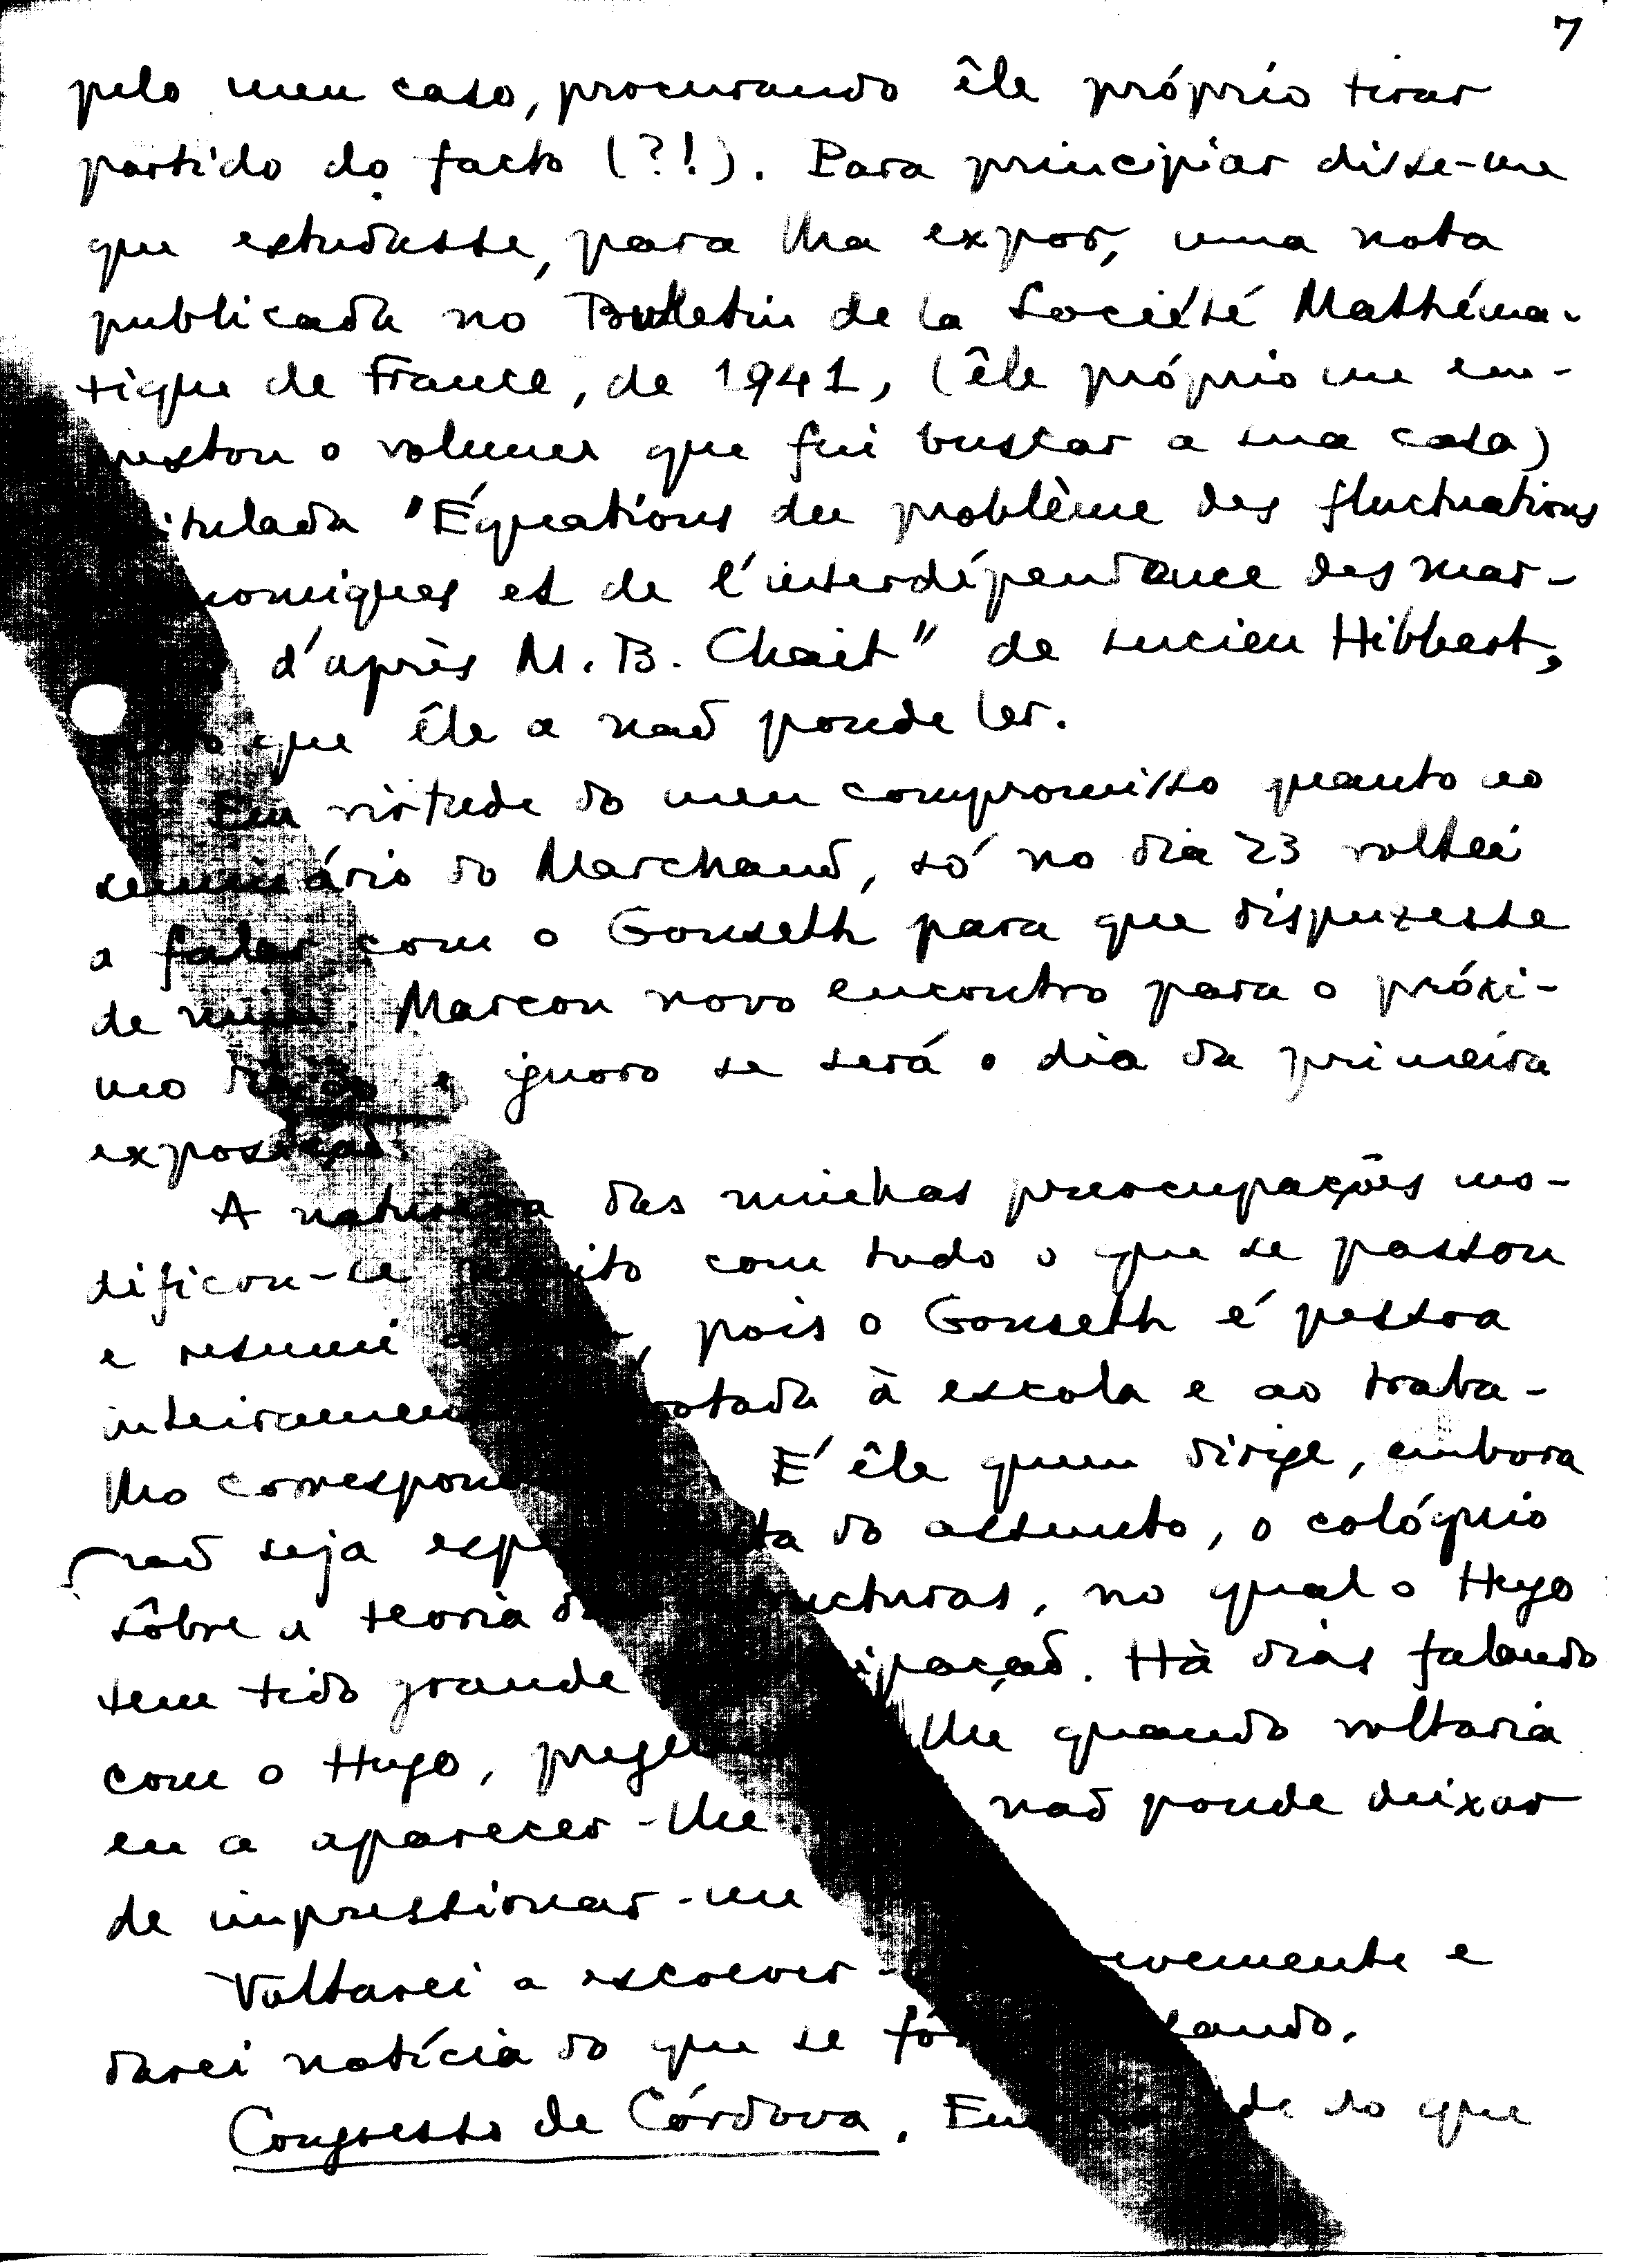 7
pelo meu caso, procurando êle próprio tirar
partido do facto (?!). Para principiar disse-me
que estudasse, para lha expor, uma nota
publicada no Bulletin de la Société Mathéma-
tique de France, de 1941, (êle próprio me em-
prestou o volume que fui buscar a sua casa)
itulada "Équations du problème des fluctuations
nomiques et de l'interdépendance des mar-
d'après M. B. Chait" de Lucien Hibbert,
o que êle a não poude ler.
Em virtude do meu compromisso quanto ao
seminário do Marchand, só no dia 23 voltei
a falar com o Gonseth para que dispuzesse
de mim. Marcou novo encontro para o próxi-
mo dia e ignoro se será o dia da primeira
exposição.
A natureza das minhas preocupações mo-
dificou-se muito com tudo o que se passou
e resumi , pois o Gonseth é pessoa
inteiramen otada à escola e ao traba-
lho correspon É êle quem dirige, embora
não seja espe ta do assunto, o colóquio
sôbre a teoria d ucturas, no qual o Hugo
tem tido grande ipação. Há dias falando
com o Hugo, pregu lhe quando voltaria
eu a aparecer-lhe não poude deixar
de impressionar-me
Voltarei a escrever- evemente e
darei notícia do que se fô sando.
Congresso de Córdova. Em de do que